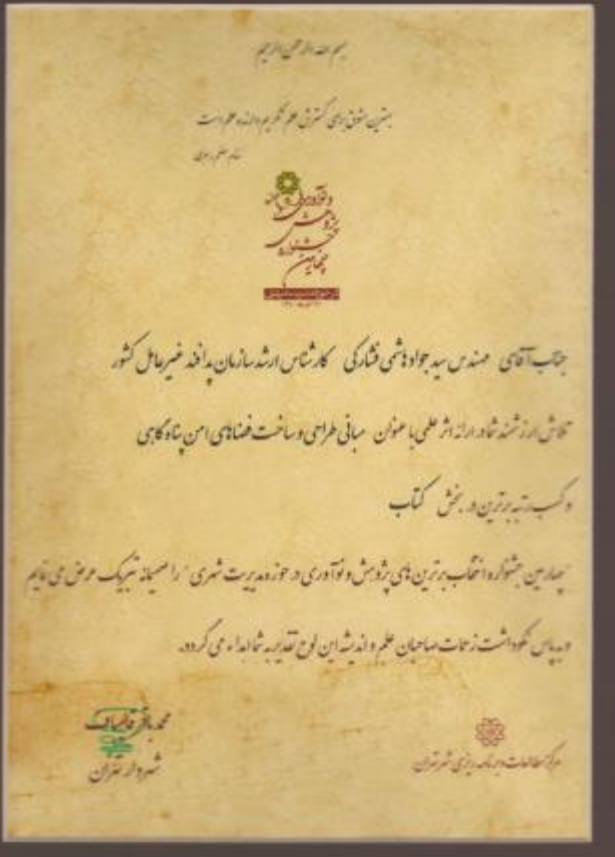 بسم الله الرحمن الرحیم
بهترین مشوق برای گسترش علم تکریم دارنده علم است
مقام معظم رهبری
چهارمین
جشنواره
پژوهش
و نوآوری
جناب آقای مهندس سید جواد هاشمی فشارکی کارشناس ارشد سازمان پدافند غیرعامل کشور
تلاش ارزشمند شما در ارائه اثر علمی با عنوان مبانی طراحی و ساخت فضاهای امن پناهگاهی
و کسب رتبه برترین در بخش کتاب
"چهارمین جشنواره انتخاب برترین های پژوهش و نوآوری در حوزه مدیریت شهری" را صمیمانه تبریک عرض می نمایم
و به پاس نکوداشت زحمات صاحبان علم و اندیشه این لوح تقدیر به شما اهداء می گردد.
محمد باقر قالیباف
شهردار تهران
مرکز مطالعات و برنامه ریزی شهر تهران